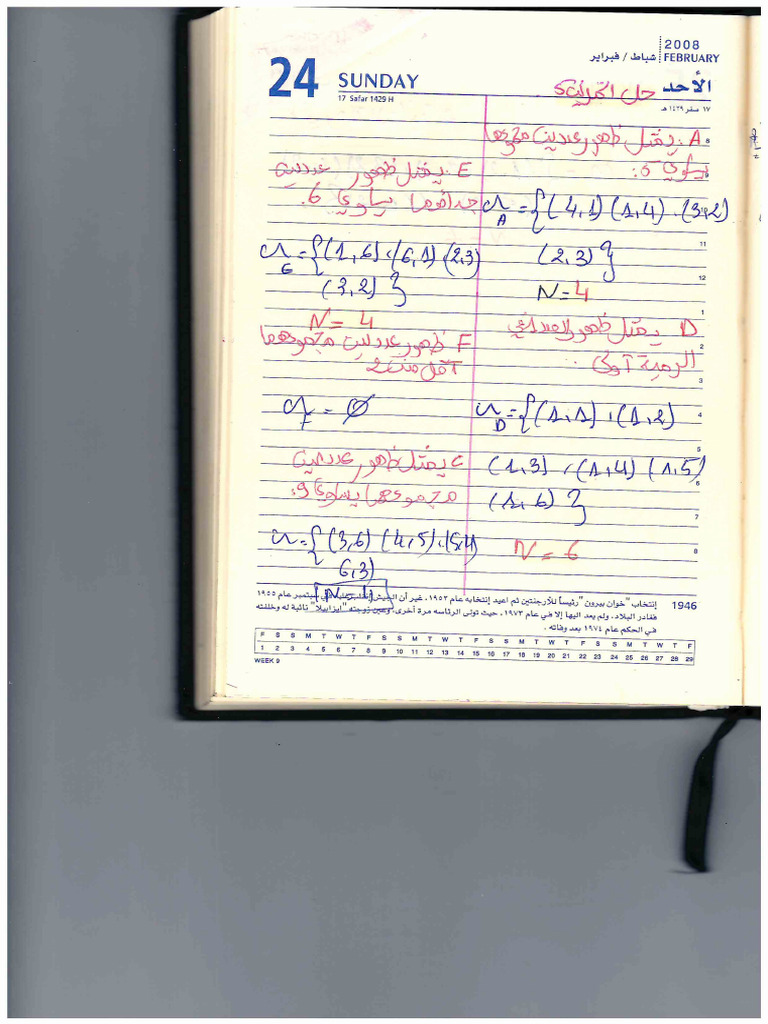 2008
شباط / فبراير FEBRUARY
24 SUNDAY
17 Safar 1429 H
الأحد
١٧ صفر ١٤٢٩ هـ
حل التمرين 5
A: يمثل ظهور عددين مجموعهما
يساوي 5:
A = {(4,1) (1,4) . (3,2)
(2,3) }
N = 4
D يمثل ظهور 1 في
الرمية أولى
D = {(1,1) , (1,2)
(1,3) , (1,4) (1,5)
(1,6) }
N = 6
E: يمثل ظهور عددين
جداؤهما يساوي 6.
= {(1,6) , (6,1) , (2,3)
(3,2) }
N = 4
F ظهور عددين مجموعهما
أقل من 2
F = ∅
يمثل ظهور عددين
مجموعهما يساوي 9:
= { (3,6) (4,5) . (5,4)
6,3)
1946 إنتخاب "خوان بيرون" رئيساً للأرجنتين ثم اعيد إنتخابه عام ١٩٥٢، غير أن الجيش سبتمبر عام ١٩٥٥
فغادر البلاد، ولم يعد اليها إلا في عام ١٩٧٣، حيث تولى الرئاسه مرة أخرى، وعين زوجته "ايزابيلا" نائبة له وخلفته
في الحكم عام ١٩٧٤ بعد وفاته .
F S S M T W T F S S M T W T F S S M T W T F S S M T W T F
1 2 3 4 5 6 7 8 9 10 11 12 13 14 15 16 17 18 19 20 21 22 23 24 25 26 27 28 29
WEEK 9
8
11
12
1
2
3
4
5
6
7
8